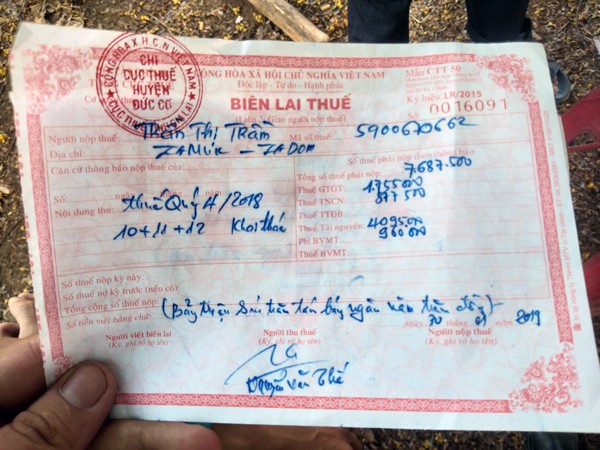 CỘNG HÒA XÃ HỘI CHỦ NGHĨA VIỆT NAM
Độc lập - Tự do - Hạnh phúc
Mẫu CTT 50
Ký hiệu: LR/2015
0016091
CỘNG HÒA X.H.C.N VIỆT NAM
CHI
CỤC THUẾ
HUYỆN
ĐỨC CƠ
BIÊN LAI THUẾ
(Liên : Giao người nộp thuế)
Người nộp thuế: Trần Thị Trầm Mã số thuế: 5900670662
Địa chỉ:
Căn cứ thông báo nộp thuế của:
Số: ngày
Nội dung thu: Thuế Quý 4/2018
10+11+12 Khai thác
Số thuế phải nộp theo thông báo
Tổng số thuế phải nộp: 7.687.500
Thuế GTGT: 1.755000
Thuế TNCN: 877500
Thuế TTĐB:
Thuế Tài nguyên: 4095000
Phí BVMT: 960000
Thuế BVMT:
Số thuế nộp kỳ này:
Số thuế nợ kỳ trước (nếu có):
Tổng cộng số thuế nộp:
Số tiền viết bằng chữ: (Bảy triệu sáu trăm tám bảy ngàn năm trăm đồng)
tháng năm 2019
Người viết biên lai
(Ký, ghi rõ họ tên)
Người thu thuế
(Ký, ghi rõ họ tên)
Người nộp thuế
(Ký, ghi rõ họ tên)
Nguyễn Văn Thế